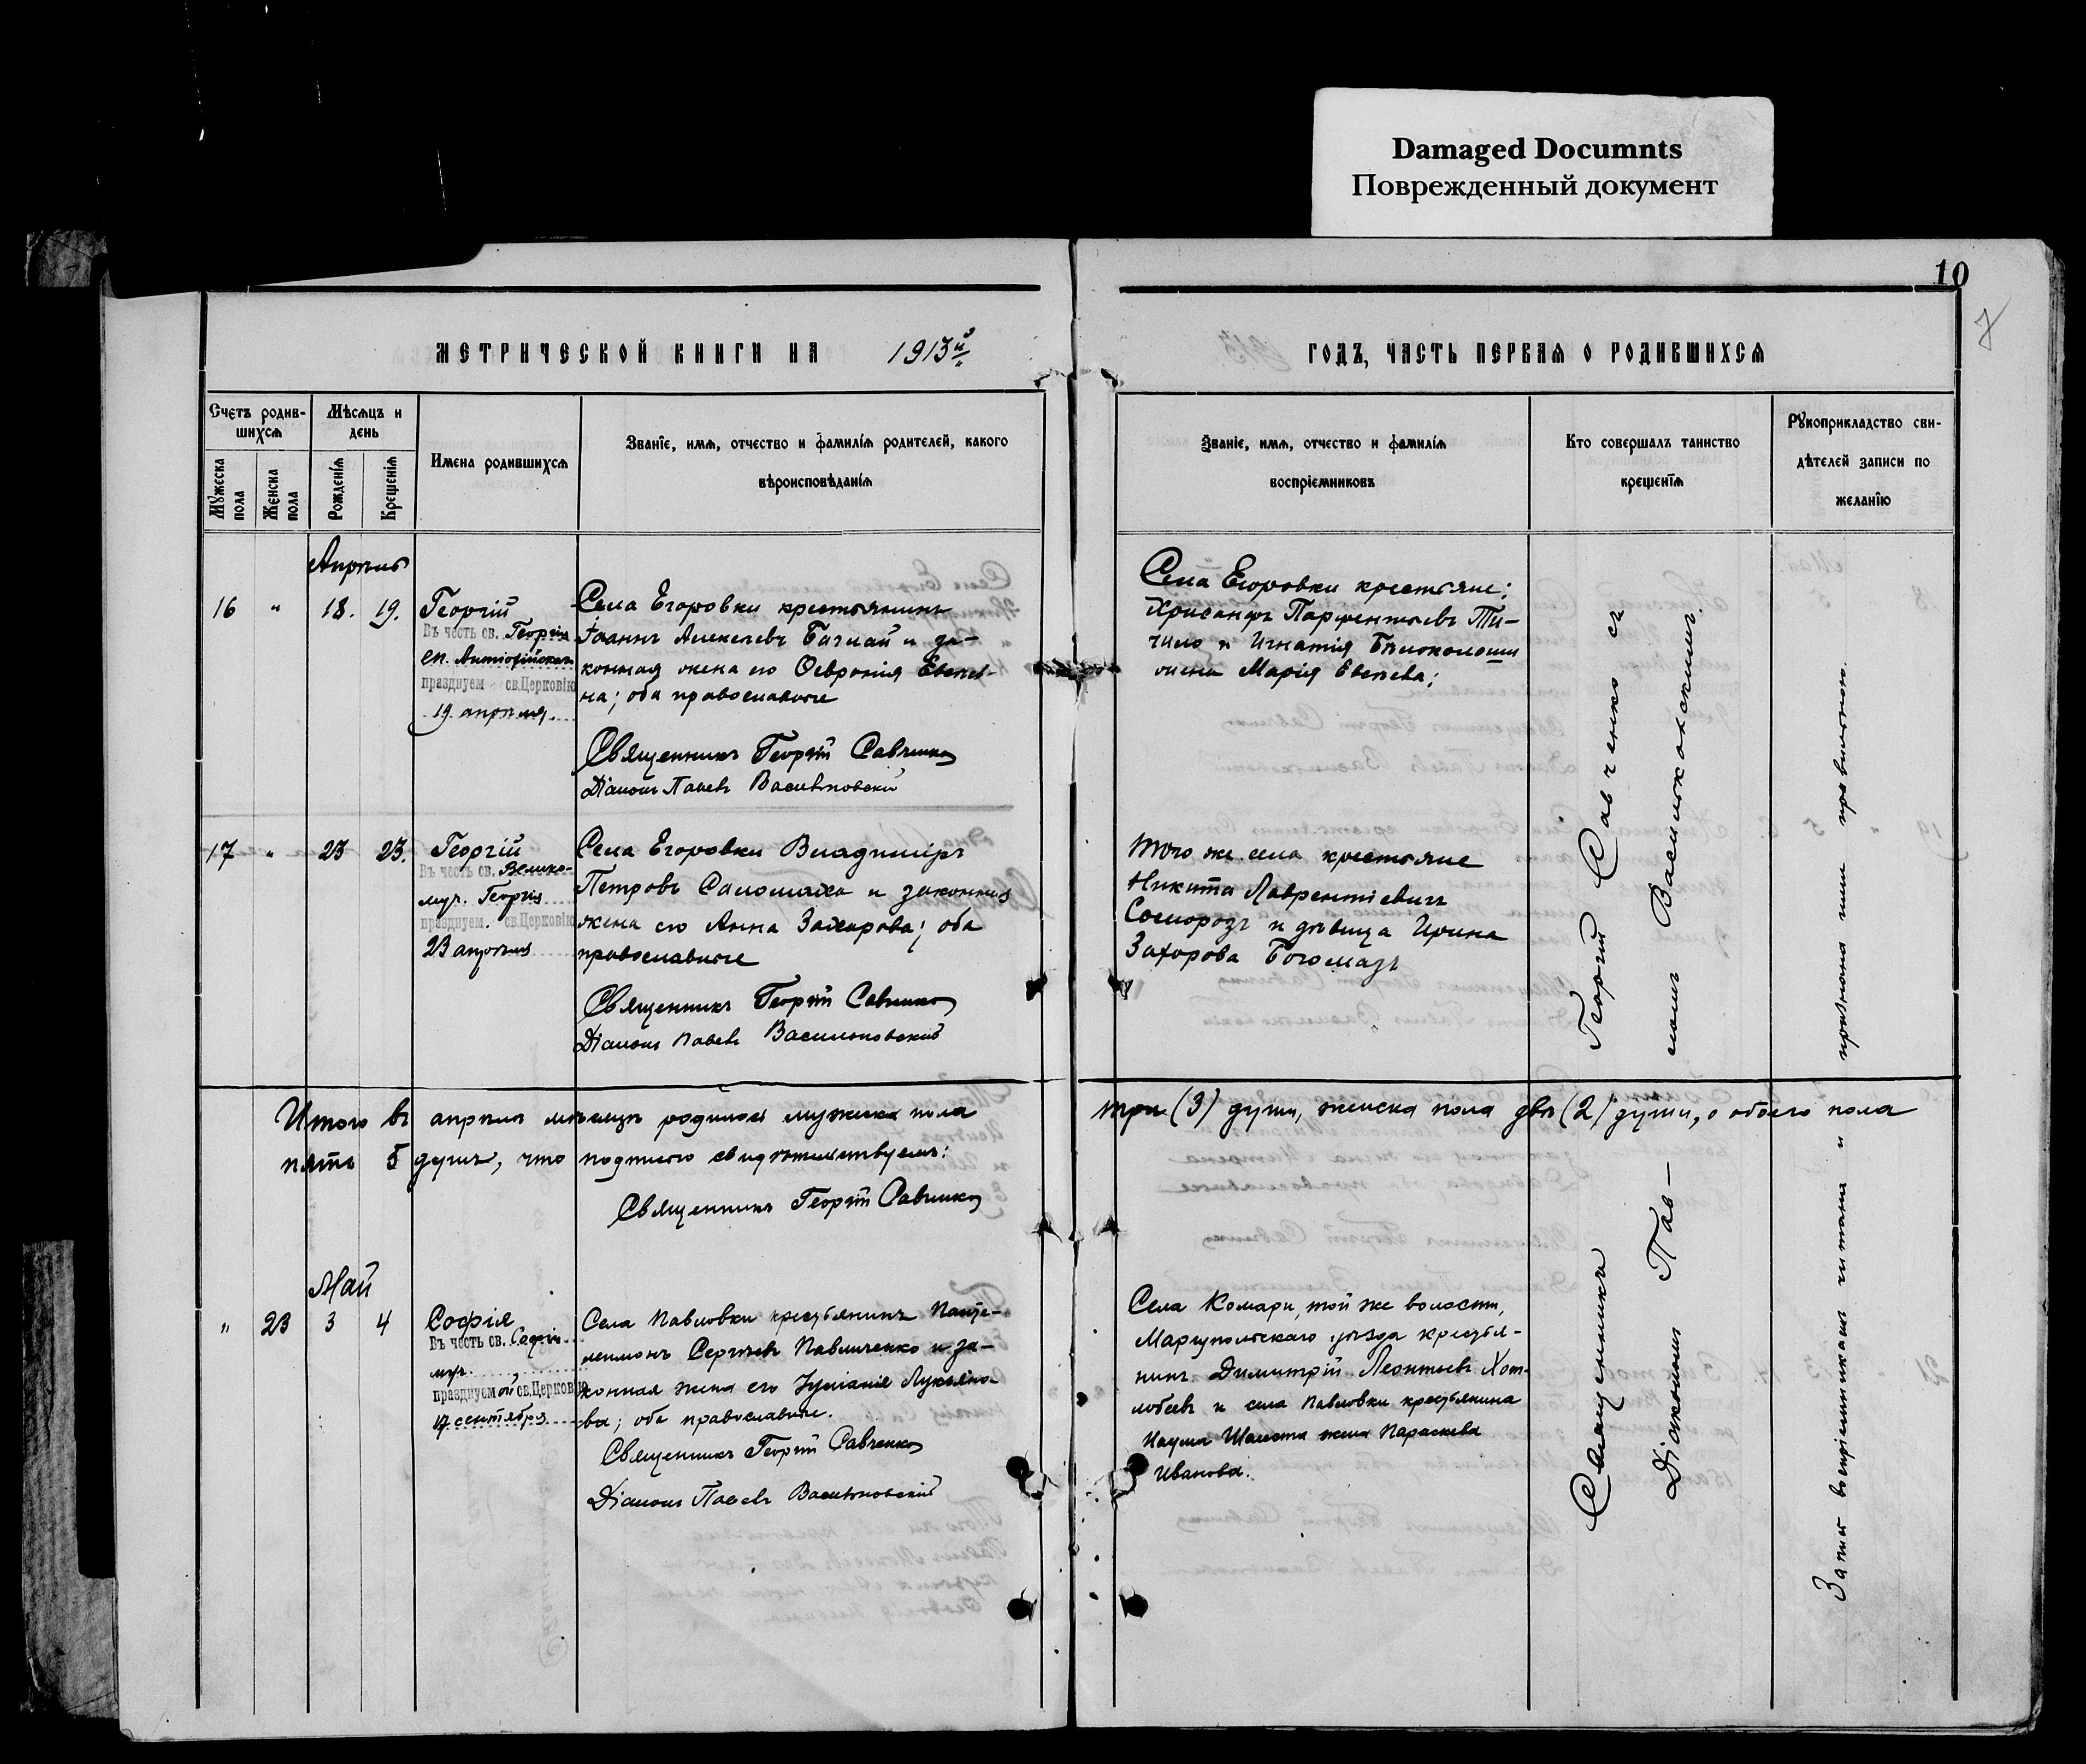 Damaged Documnts
Поврежденный документ
10
7
МЕТРИЧЕСКОЙ КНИГИ НА 1913й
ГОДЪ, ЧАСТЬ ПЕРВАЯ О РОДИВШИХСЯ
Счетъ родив-
шихся
Мѣсяцъ и
день
Мужеска
пола
Женска
пола
Рожденія
Крещенія
Имена родившихся
Званіе, имя, отчество и фамилія родителей, какого
вѣроисповѣданія
Званіе, имя, отчество и фамилія
воспріемниковъ
Кто совершалъ таинство
крещенія
Рукоприкладство сви-
дѣтелей записи по
желанію
Апрѣль
16 " 18. 19.
Георгій
Въ честь св. Георгія
еп. Антіохійскаго
празднуем св.Церковію
19 апрѣля.
Села Егоровки крестьянинъ
Іоаннъ Алексѣевъ и за-
конная жена его Ѳевронія Евсѣе-
ва; оба православные
Священникъ Георгій Савченко
Діаконъ Павелъ Васильковскій
Села Егоровки крестьяне:
Хрисанфъ Парфентьевъ Ти-
и Игнатія
жена Марія Евсѣева;
17 " 23 23.
Георгій
Въ честь св. Велико-
муч. Георгія
празднуем. св.Церковію
23 апрѣля
Села Егоровки Владиміръ
Петровъ и законная
жена его Анна Захарова; оба
православные
Священникъ Георгій Савченко
Діаконъ Павелъ Васильковскій
Того же села крестьяне
Никита Лаврентіевичъ
и дѣвица Ирина
Захарова Богомазъ
Итого въ апрѣлѣ мѣсяцѣ родилось мужеска пола
три (3) души, женска пола двѣ (2) души, а обоего пола
пять 5 душъ, что подписью свидѣтельствуемъ:
Священникъ Георгій Савченко
Май
" 23 3 4
Софія
Въ честь св. Софіи
муч.
празднуемой св.Церковію
17 сентября
Села Павловки крестьянинъ Панте-
леимонъ Сергѣевъ Павличенко и за-
конная жена его Іуліанія Лукьяно-
ва; оба православные.
Священникъ Георгій Савченко
Діаконъ Павелъ Васильковскій
Села Комари, той же волости,
Маріупольскаго уѣзда крестья-
нинъ Димитрій Леонтьевъ Хот-
лобеевъ и села Павловки крестьянина
Наума жена Параскева
Иванова.
Священникъ Георгій Савченко съ
Діакономъ Пав-
ломъ Васильковскимъ.
Запись воспріемниками читана и признана ими правильною.